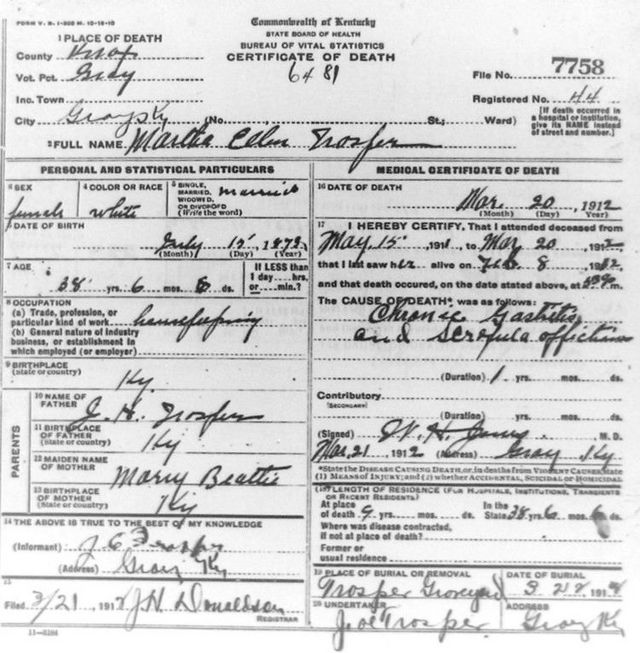 FORM V. S. 1-
Commonwealth of Kentucky
STATE BOARD OF HEALTH
BUREAU OF VITAL STATISTICS
CERTIFICATE OF DEATH
6481
1 PLACE OF DEATH
County Knox
Vot. Pct. Gray
Inc. Town
City Grays Ky (No. St.; Ward)
File No. 7758
Registered No. 44
[If death occurred in a hospital or institution, give its NAME instead of street and number.]
2 FULL NAME Martha Ellen Trosper
PERSONAL AND STATISTICAL PARTICULARS
3 SEX
female
4 COLOR OR RACE
white
5 SINGLE, MARRIED, WIDOWED, OR DIVORCED (Write the word)
married
6 DATE OF BIRTH
July 15 1873
(Month) (Day) (Year)
7 AGE
38 yrs. 6 mos. 6 ds.
If LESS than 1 day hrs. or min.?
8 OCCUPATION
(a) Trade, profession, or particular kind of work housekeeping
(b) General nature of industry business, or establishment in which employed (or employer)
9 BIRTHPLACE
(State or country)
Ky
PARENTS
10 NAME OF FATHER
J. H. Trosper
11 BIRTHPLACE OF FATHER (State or country)
Ky
12 MAIDEN NAME OF MOTHER
Marry Beattie
13 BIRTHPLACE OF MOTHER (State or country)
Ky
14 THE ABOVE IS TRUE TO THE BEST OF MY KNOWLEDGE
(Informant) J. C. Trosper
(Address) Gray Ky
15
Filed 3/21 1912 J. H. Donaldson
REGISTRAR
11-3184
MEDICAL CERTIFICATE OF DEATH
16 DATE OF DEATH
Mar. 20 1912
(Month) (Day) Year
17 I HEREBY CERTIFY, That I attended deceased from
May 15 191 to Mar 20 1912
that I last saw her alive on Feb 8 1912
and that death occured, on the date stated above, at m.
The CAUSE OF DEATH* was as follows:
Chronic Gastritis
and Scrofula affiction
(Duration) 1 yrs. mos. ds.
Contributory
(SECONDARY)
(Duration) yrs. mos. ds.
(Signed) W. H. Jones M. D.
Mar. 21 1912 (Address) Gray Ky
*State the DISEASE CAUSING DEATH, or, in deaths from VIOLENT CAUSES, state
(1) MEANS OF INJURY; and (2) whether ACCIDENTAL, SUICIDAL or HOMICIDAL
18 LENGTH OF RESIDENCE (FOR HOSPITALS, INSTITUTIONS, TRANSIENTS OR RECENT RESIDENTS)
At place of death 9 yrs. mos. ds. In the State 38 yrs. 6 mos. 6 ds.
Where was disease contracted, if not at place of death?
Former or usual residence
19 PLACE OF BURIAL OR REMOVAL
Trosper Graveyard
DATE OF BURIAL
191
20 UNDERTAKER
Joe Trosper
ADDRESS
Gray Ky